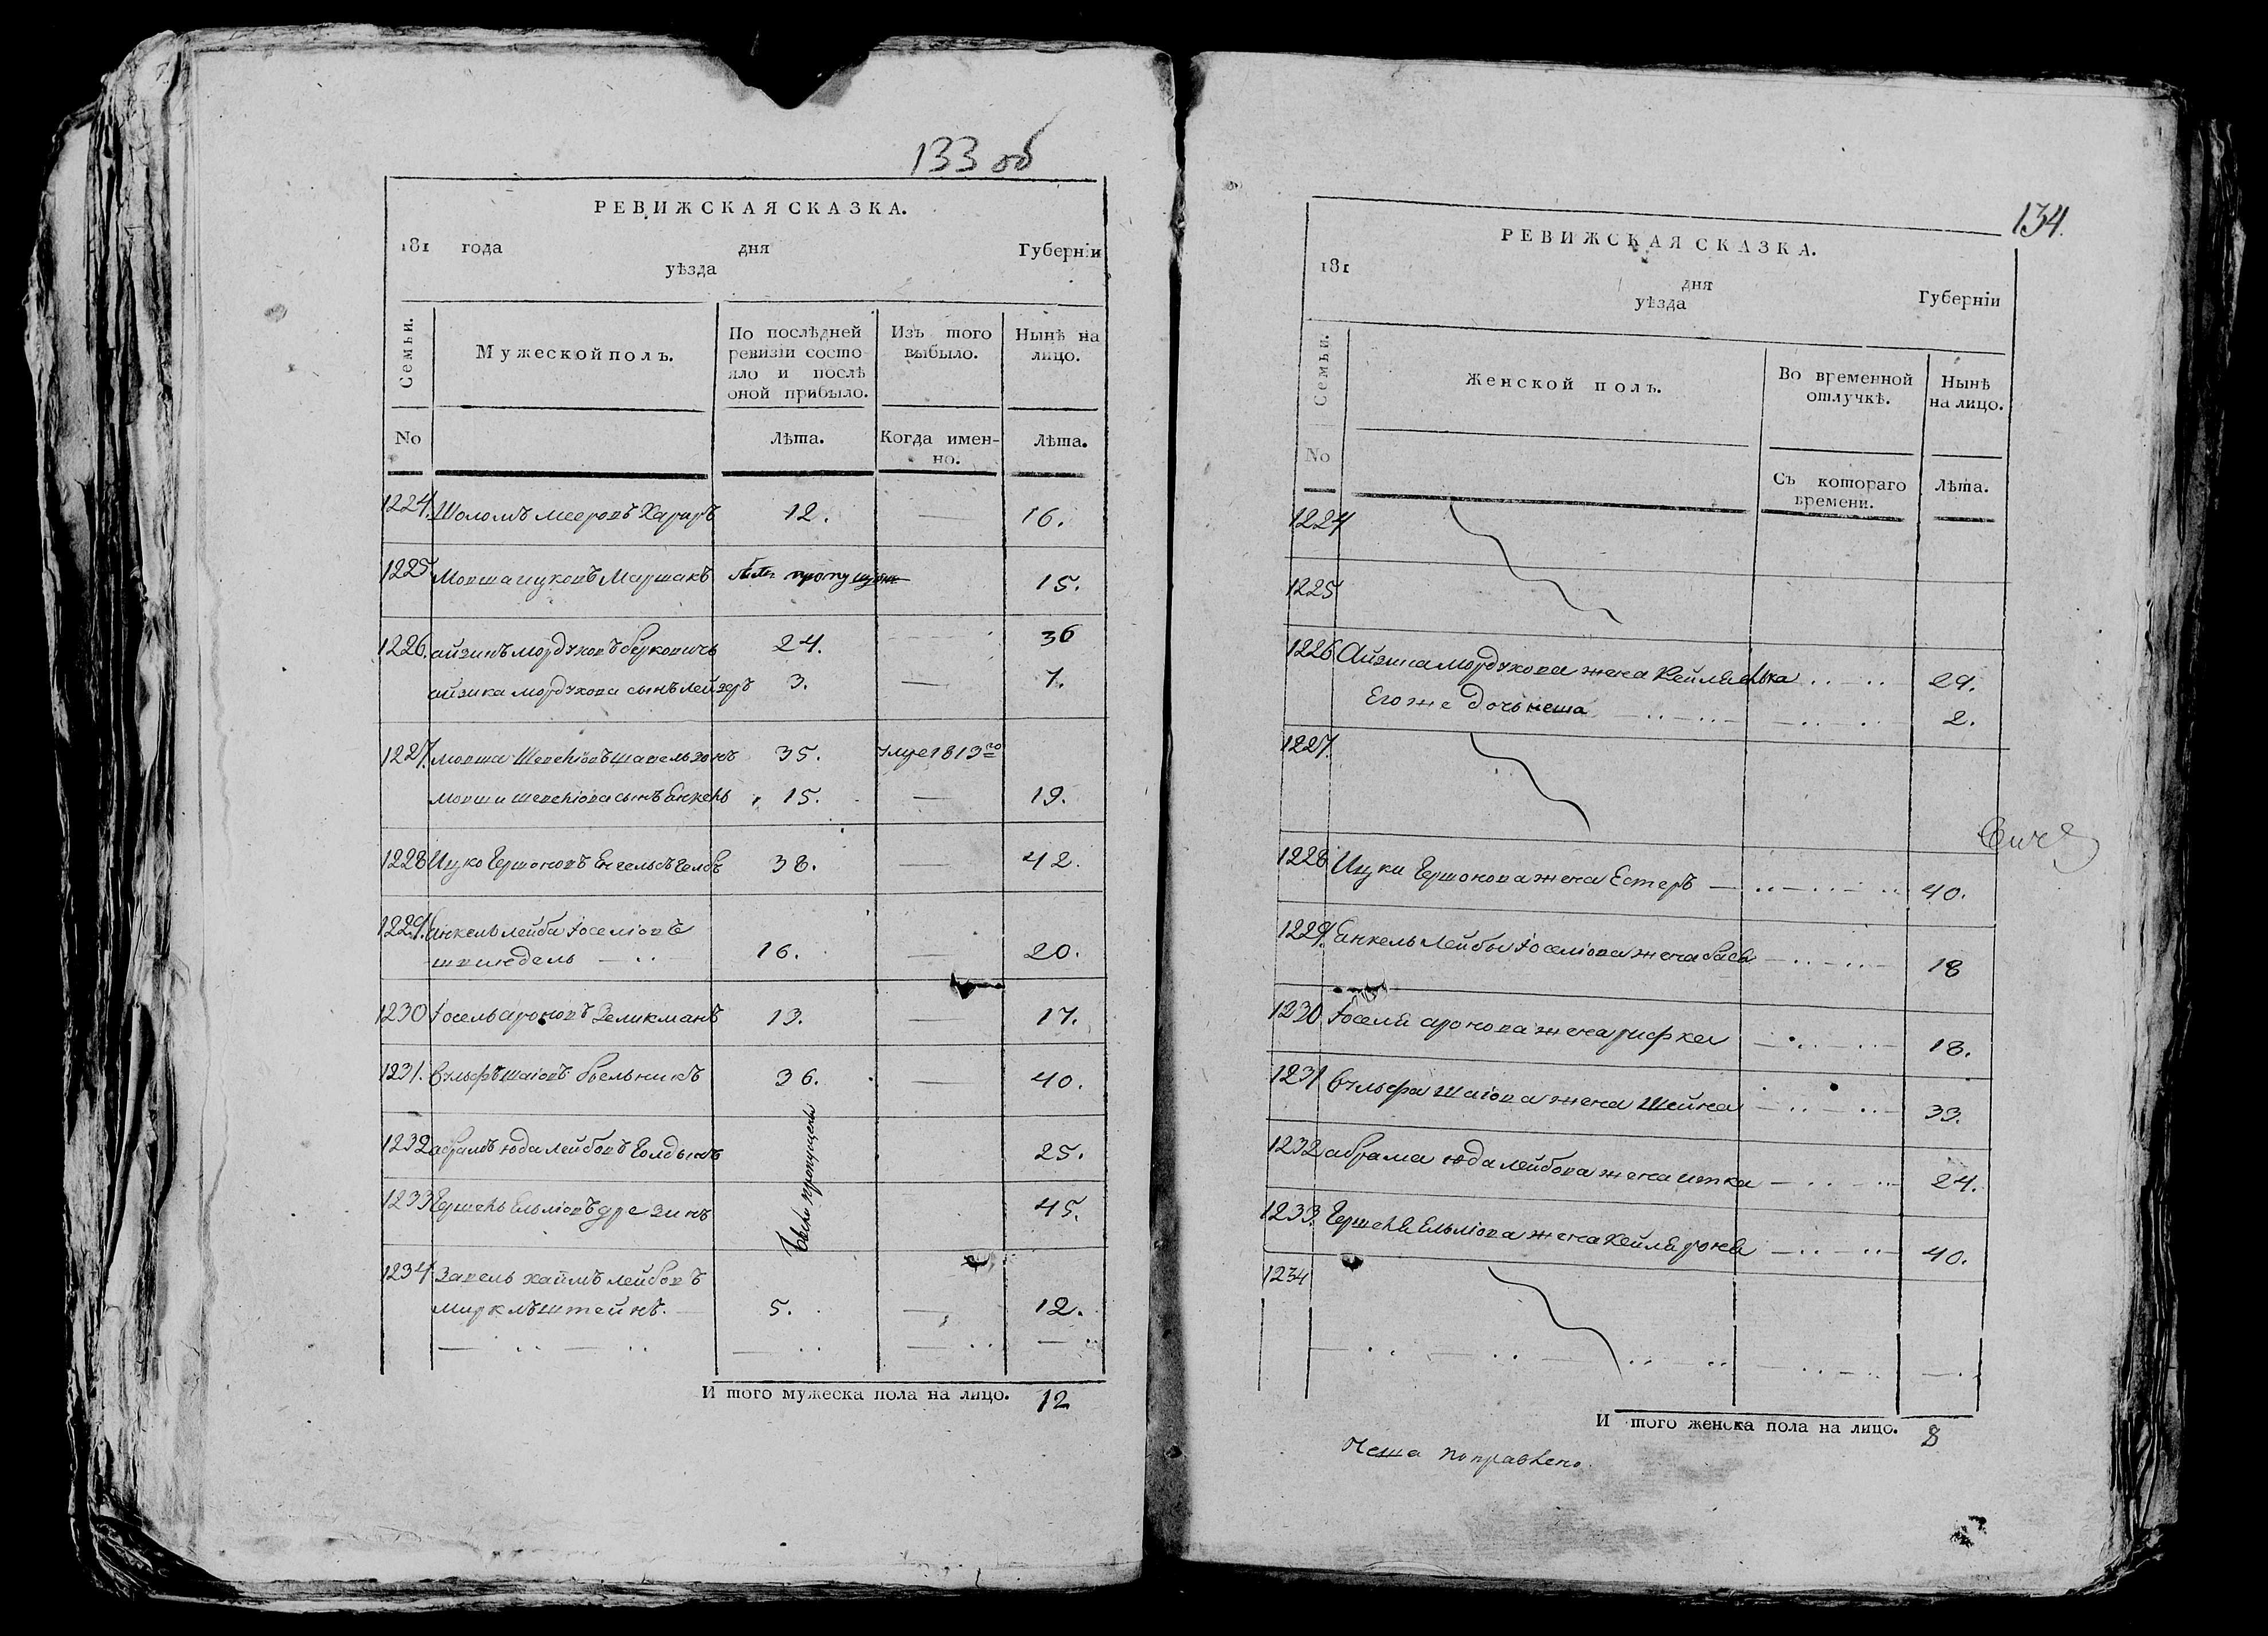 133 об
РЕВИЖСКАЯ СКАЗКА.
181 года дня Губерніи
уѣзда
Семьи.
Мужеской полъ.
По послѣдней ревизіи состояло и послѣ оной прибыло.
Изъ того выбыло.
Нынѣ на лицо.
No
Лѣта.
Когда именно.
Лѣта.
1224. Шоломъ Мееровъ 12. — 16.
1225 Мовша Ицковъ Маршакъ 15.
1226. Айзикъ Мордуховъ Берковичь 24. 36
Айзика Мордухова сынъ Лейзеръ 3. — 7.
1227. Мовша 35. Умре 1813го
Мовши сынъ Янкель 15. — 19.
1228 Ицко Гершоновъ 38. — 42.
1229. Янкель Лейба Іоселіовъ
шпилдель — 16. — 20.
1230 Іосель Ароновъ Зеликманъ 13. — 17.
1231. Вульфъ Шаіовъ 36. — 40.
Были пропущены
1232 Абрамъ Юда Лейбовъ Голдинъ 25.
1233 Гершень Ельліовъ Дрезинъ 45.
1234 Завель Хаимъ Лейбовъ
Миркльштейнъ. — 5. — 12.
И того мужеска пола на лицо. 12
134.
РЕВИЖСКАЯ СКАЗКА.
181
дня
уѣзда Губерніи
Семьи.
Женской полъ.
Во временной отлучкѣ.
Нынѣ на лицо.
No
Съ котораго времени.
Лѣта.
1224
1225
1226 Айзика Мордухова жена 29.
Его же дочь Неша 2.
1227.
1228 Ицки Гершонова жена Естеръ — 40.
1229. Янкель Лейбы Іоселіова жена Бася — 18
1230 Іоселя Аронова жена Рифка — 18.
1231 Вульфа Шаіова жена Шейна — 33.
1232 Абрама Юда Лейбова жена Итка — 24.
1233. Гершеня Ельліова жена Кейля Рохля — 40.
1234
И того женска пола на лицо. 8
Неша поправлено.